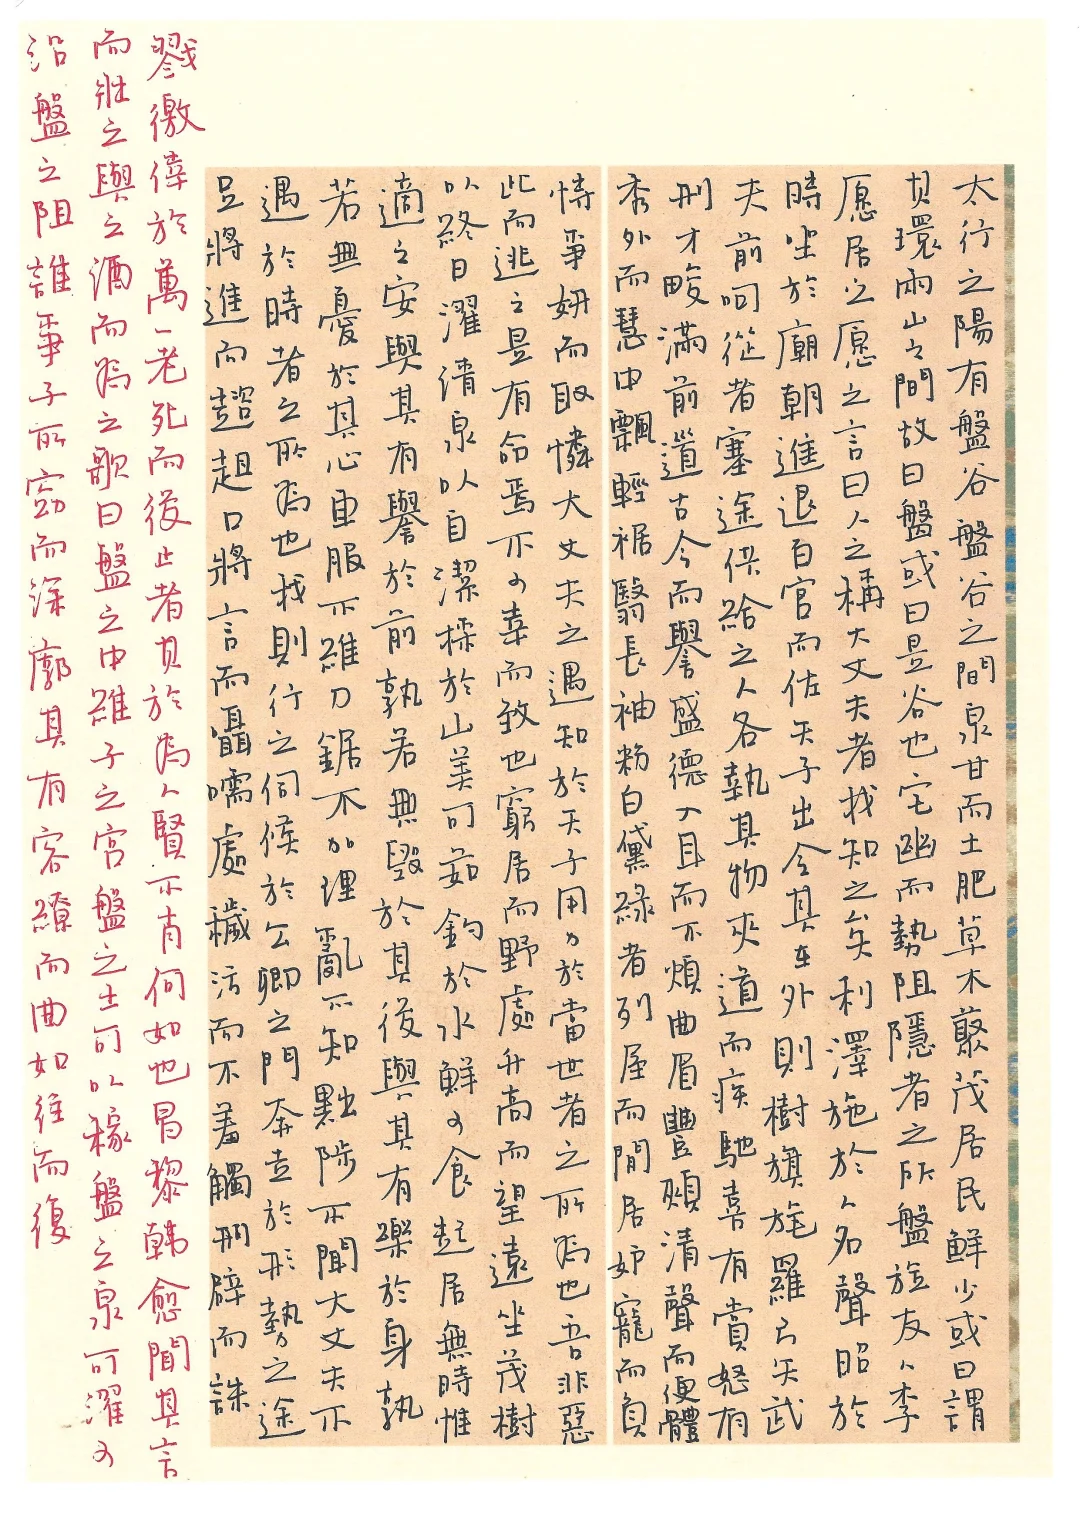 太行之陽有盤谷盤谷之間泉甘而土肥草木藂茂居民鮮少或曰謂
其環兩山之間故曰盤或曰是谷也宅幽而勢阻隱者之所盤旋友人李
愿居之愿之言曰人之稱大丈夫者我知之矣利澤施於人名聲昭於
時坐於廟朝進退百官而佐天子出令其在外則樹旗旄羅弓矢武
夫前呵從者塞途供給之人各執其物夾道而疾馳喜有賞怒有
刑才畯滿前道古今而譽盛德入耳而不煩曲眉豐頰清聲而便體
秀外而慧中飄輕裾翳長袖粉白黛綠者列屋而閒居妒寵而負
恃爭妍而取憐大丈夫之遇知於天子用力於當世者之所為也吾非惡
此而逃之是有命焉不可幸而致也窮居而野處升高而望遠坐茂樹
以終日濯清泉以自潔採於山美可茹釣於水鮮可食起居無時惟
適之安與其有譽於前孰若無毀於其後與其有樂於身孰
若無憂於其心車服不維刀鋸不加理亂不知黜陟不聞大丈夫不
遇於時者之所為也我則行之伺候於公卿之門奔走於形勢之途
足將進而趑趄口將言而囁嚅處穢污而不羞觸刑辟而誅
戮徼倖於萬一老死而後止者其於為人賢不肖何如也昌黎韓愈聞其言
而壯之與之酒而為之歌曰盤之中維子之宮盤之土可以稼盤之泉可濯可
沿盤之阻誰爭子所窈而深廓其有容繚而曲如往而復